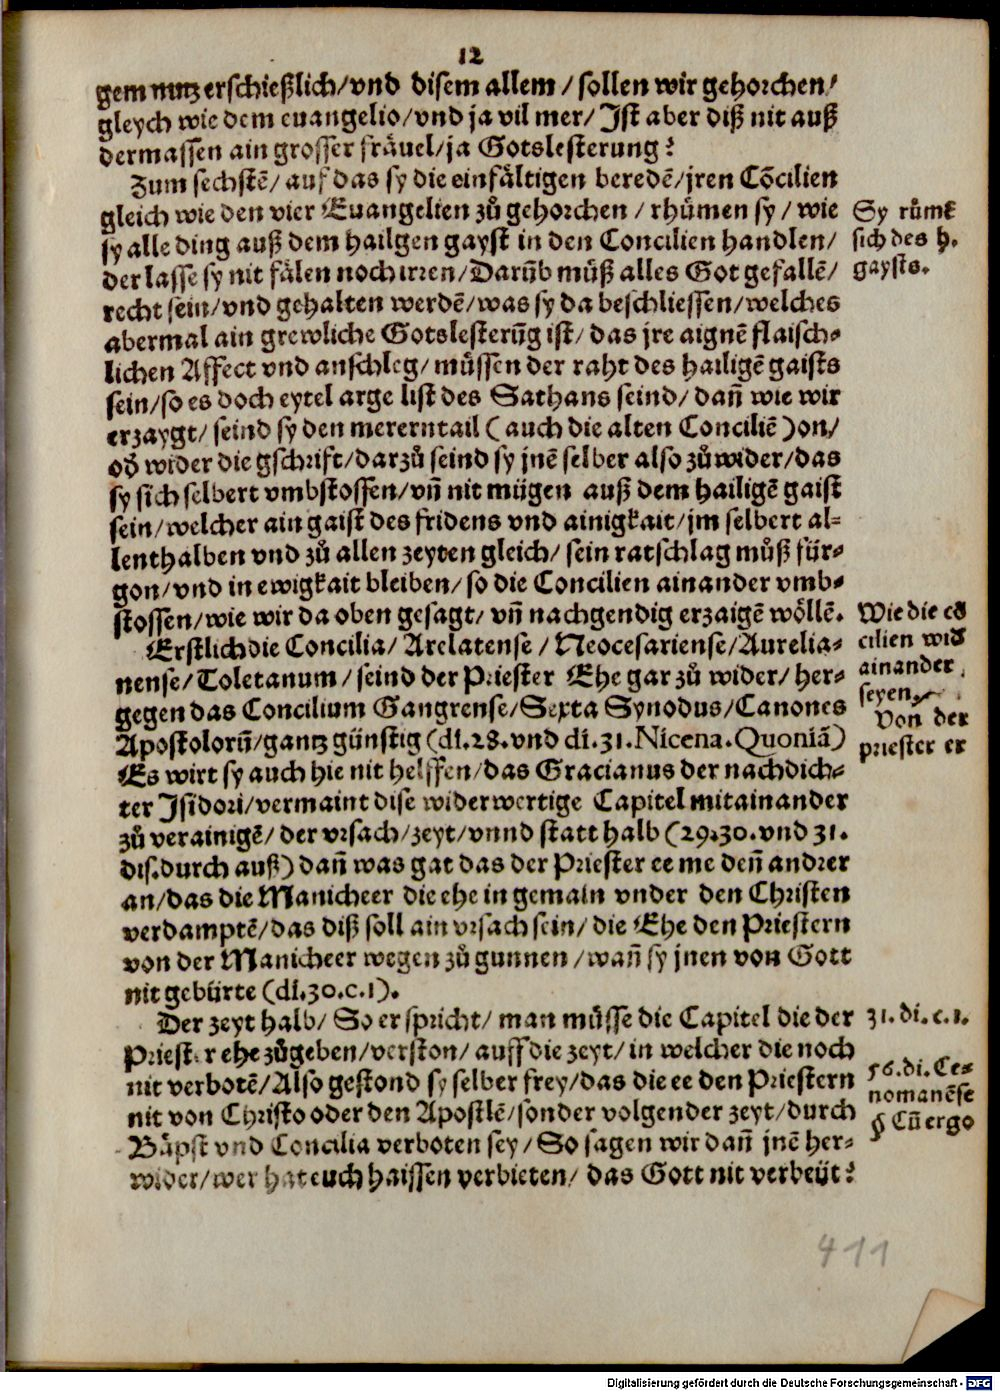 12
gem nutz erschießlich/vnd disem allem/sollen wir gehorchen/
gleych wie dem euangelio/vnd ja vil mer/Ist aber diß nit auß
dermassen ain grosser fräuel/ja Gotslesterung?
Zum sechstē/auf das sy die einfältigen beredē/jren Cōcilien
gleich wie den vier Euangelien zů gehorchen/rhümen sy/wie
sy alle ding auß dem hailgen gayst in den Concilien handlen/
der lasse sy nit fälen noch irren/Darūb müß alles Got gefallē/
recht sein/vnd gehalten werdē/was sy da beschliessen/welches
abermal ain grewliche Gotslesterūg ist/das jre aignē flaisch-
lichen Affect vnd anschleg/müssen der raht des hailigē gaists
sein/so es doch eytel arge list des Sathans seind/dañ wie wir
erzaygt/seind sy den mererntail (auch die alten Conciliē) on/
oď wider die gschrift/darzů seind sy jnē selber also zů wider/das
sy sich selbert vmbstossen/vñ nit mügen auß dem hailigē gaist
sein/welcher ain gaist des fridens vnd ainigkait/jm selbert al-
lenthalben vnd zů allen zeyten gleich/sein ratschlag můß für-
gon/vnd in ewigkait bleiben/so die Concilien ainander vmb-
stossen/wie wir da oben gesagt/vñ nachgendig erzaigē wöllē.
Erstlich die Concilia/Arelatense/Neocesariense/Aurelia-
nense/Toletanum/seind der Priester Ehe gar zů wider/her-
gegen das Concilium Gangrense/Sexta Synodus/Canones
Apostolorū/gantz günstig (di.28.vnd di.31.Nicena.Quoniā)
Es wirt sy auch hie nit helffen/das Gracianus der nachdich-
ter Isidori/vermaint dise widerwertige Capitel mitainander
zů verainigē/der vrsach/zeyt/vnnd statt halb (29.30.vnd 31.
dis.durch auß) dañ was gat das der Priester ee me deñ andrer
an/das die Manicheer die ehe in gemain vnder den Christen
verdamptē/das diß soll ain vrsach sein/die Ehe den Priestern
von der Manicheer wegen zů gunnen/wañ sy jnen von Gott
nit gebürte (di.30.c.1).
Der zeyt halb/So er spricht/man müsse die Capitel die der
Priester ehe zůgeben/verston/auff die zeyt/in welcher die noch
nit verbotē/Also gestond sy selber frey/das die ee den Priestern
nit von Christo oder den Apostlē/sonder volgender zeyt/durch
Bäpst vnd Concilia verboten sey/So sagen wir dañ jnē her-
wider/wer hat euch haissen verbieten/das Gott nit verbeüt?
Sy růmē
sich des h.
gaysts.
Wie die cō
cilien wiď
ainander
seyen
Von der
priester ee
31.di.c.1.
56.di.Ce-
nomanēse
§ Cū ergo
411
Digitalisierung gefördert durch die Deutsche Forschungsgemeinschaft - DFG